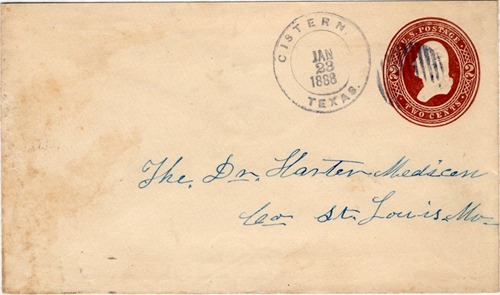 CISTERN,
JAN
23
1888
TEXAS.
U.S. POSTAGE
TWO CENTS
The. Dr. Harter Medicen
Co St. Louis. Mo.